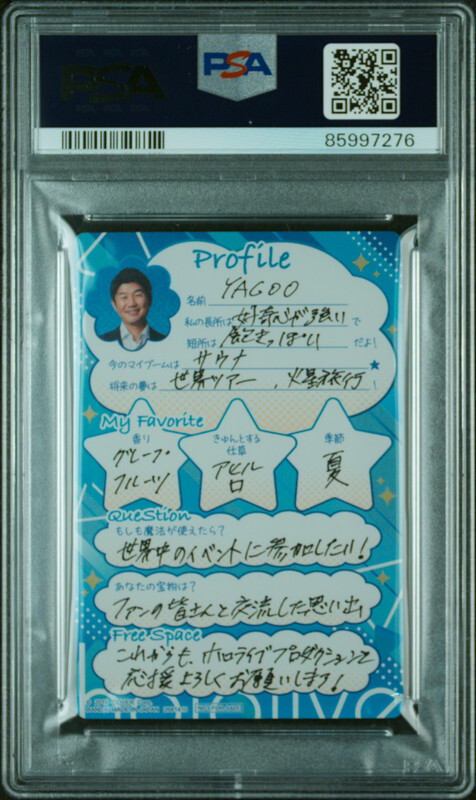 PSA
PSA
85997276
Profile
名前 YAGOO
私の長所は 好奇心が強い で
短所は 飽きっぽい だよ!
今のマイブームは サウナ
将来の夢は 世界ツアー、火星旅行!
My Favorite
香り
グレープ
フルーツ
きゅんとする
仕草
アヒル
口
季節
夏
Question
もしも魔法が使えたら?
世界中のイベントに参加したい!
あなたの宝物は?
ファンの皆さんと交流した思い出
Free Space
これからも、ホロライブプロダクションを
応援よろしくお願いします!
hololive
PSA